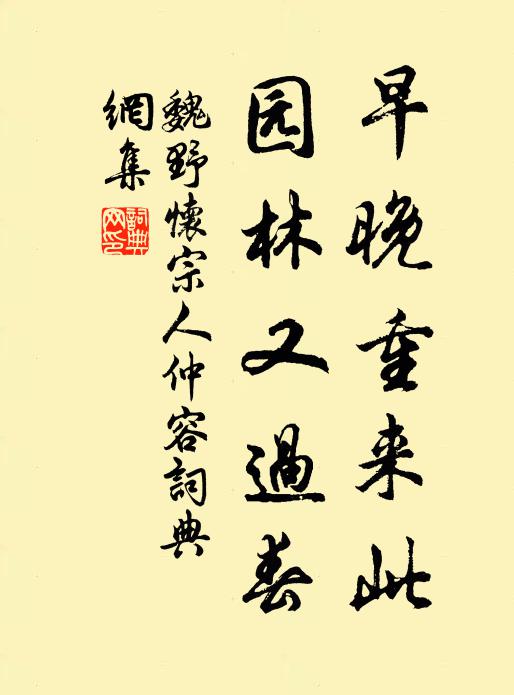 早晚重来此
园林又過春
魏野懷宗人仲容詞典
網集
詞典
网印